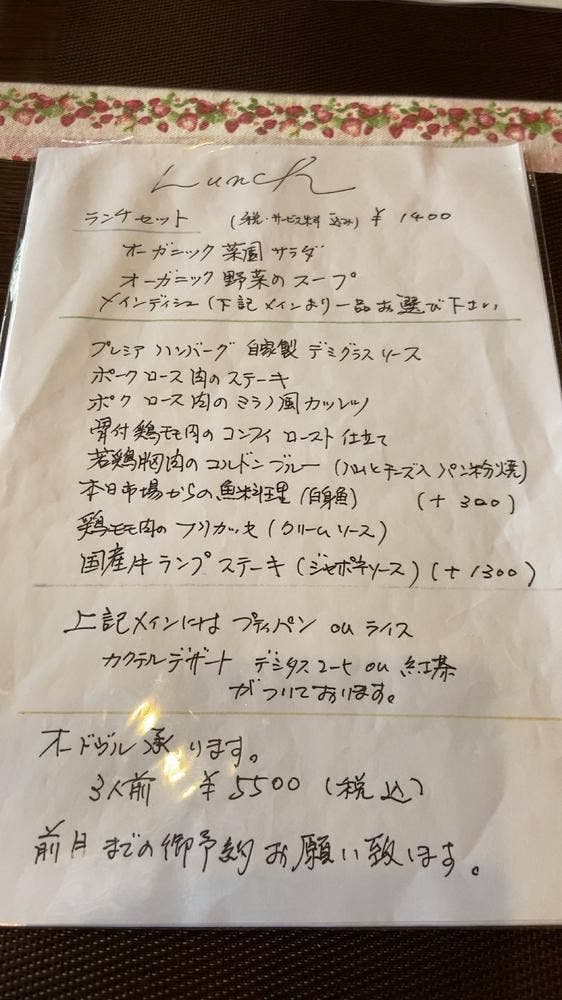 Lunch
ランチセット (税・サービス料 込み) ¥ 1400
オーガニック 菜園 サラダ
オーガニック 野菜のスープ
メインディシュ (下記メインより一品お選び下さい
プレミア ハンバーグ 自家製 デミグラスソース
ポークロース肉のステーキ
ポクロース肉のミラノ風カツレツ
骨付鶏モモ肉のコンフィ ロースト仕立て
若鶏胸肉のコルドンブルー (ハムとチーズ入パン粉焼)
本日市場からの魚料理 (白身魚) (+ 300)
鶏モモ肉のフリカッセ (クリームソース)
国産牛ランプステーキ (ジャポネソース) (+1300)
上記メインには プティパン ou ライス
カクテルデザート デミタスコーヒ ou 紅茶
がついております。
オードヴル承ります。
3人前 ¥5500 (税込)
前日までの御予約お願い致します。